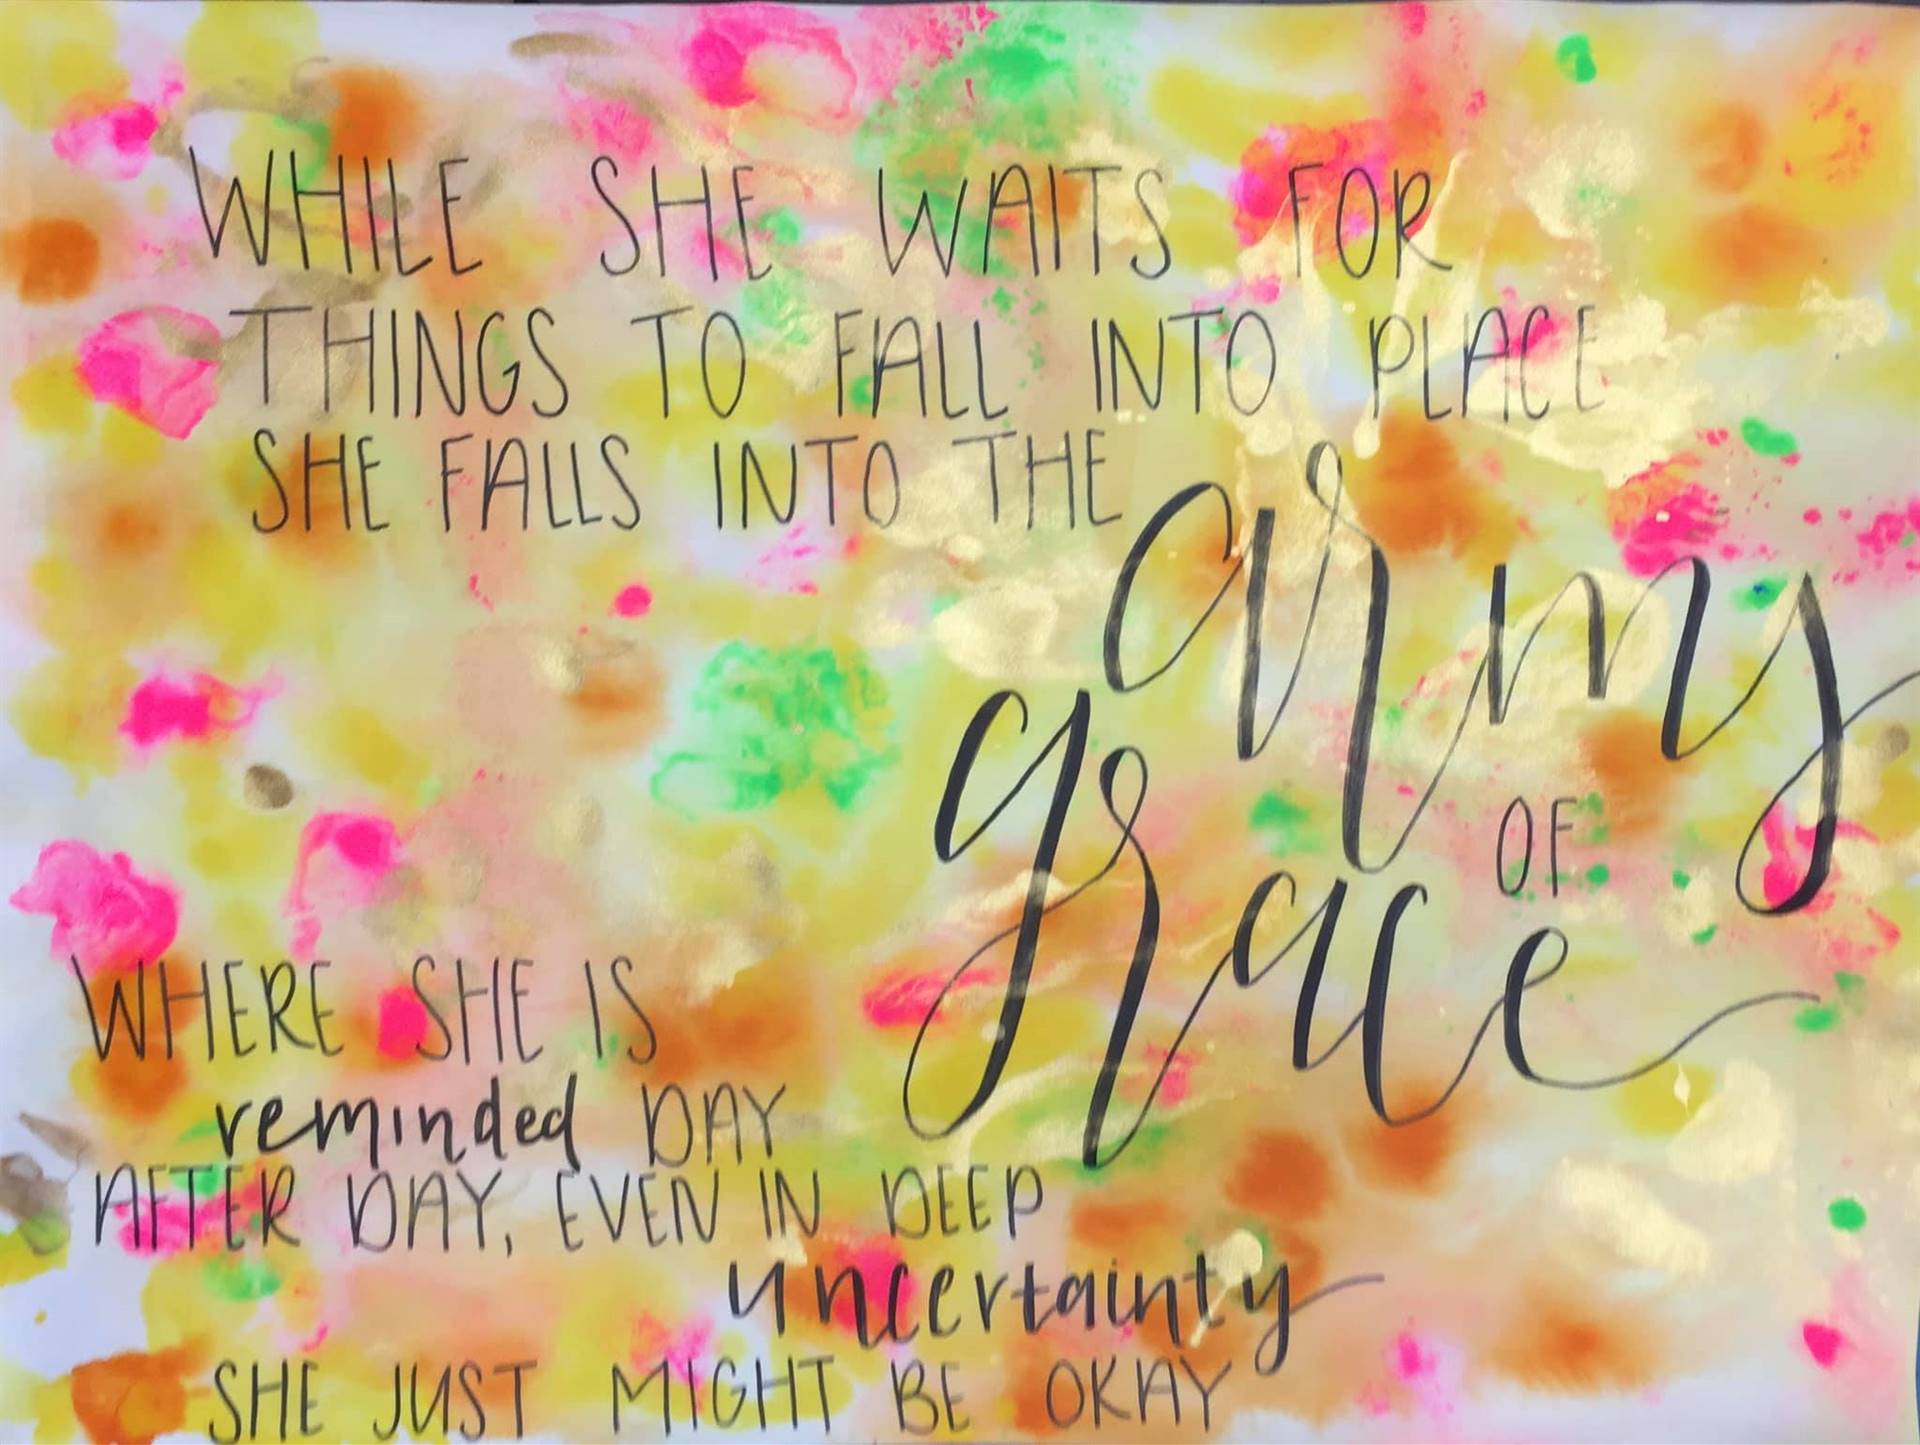 WHILE SHE WAITS FOR
THINGS TO FALL INTO PLACE
SHE FALLS INTO THE
army
OF
grace
WHERE SHE IS
reminded DAY
AFTER DAY, EVEN IN DEEP
uncertainty
SHE JUST MIGHT BE OKAY